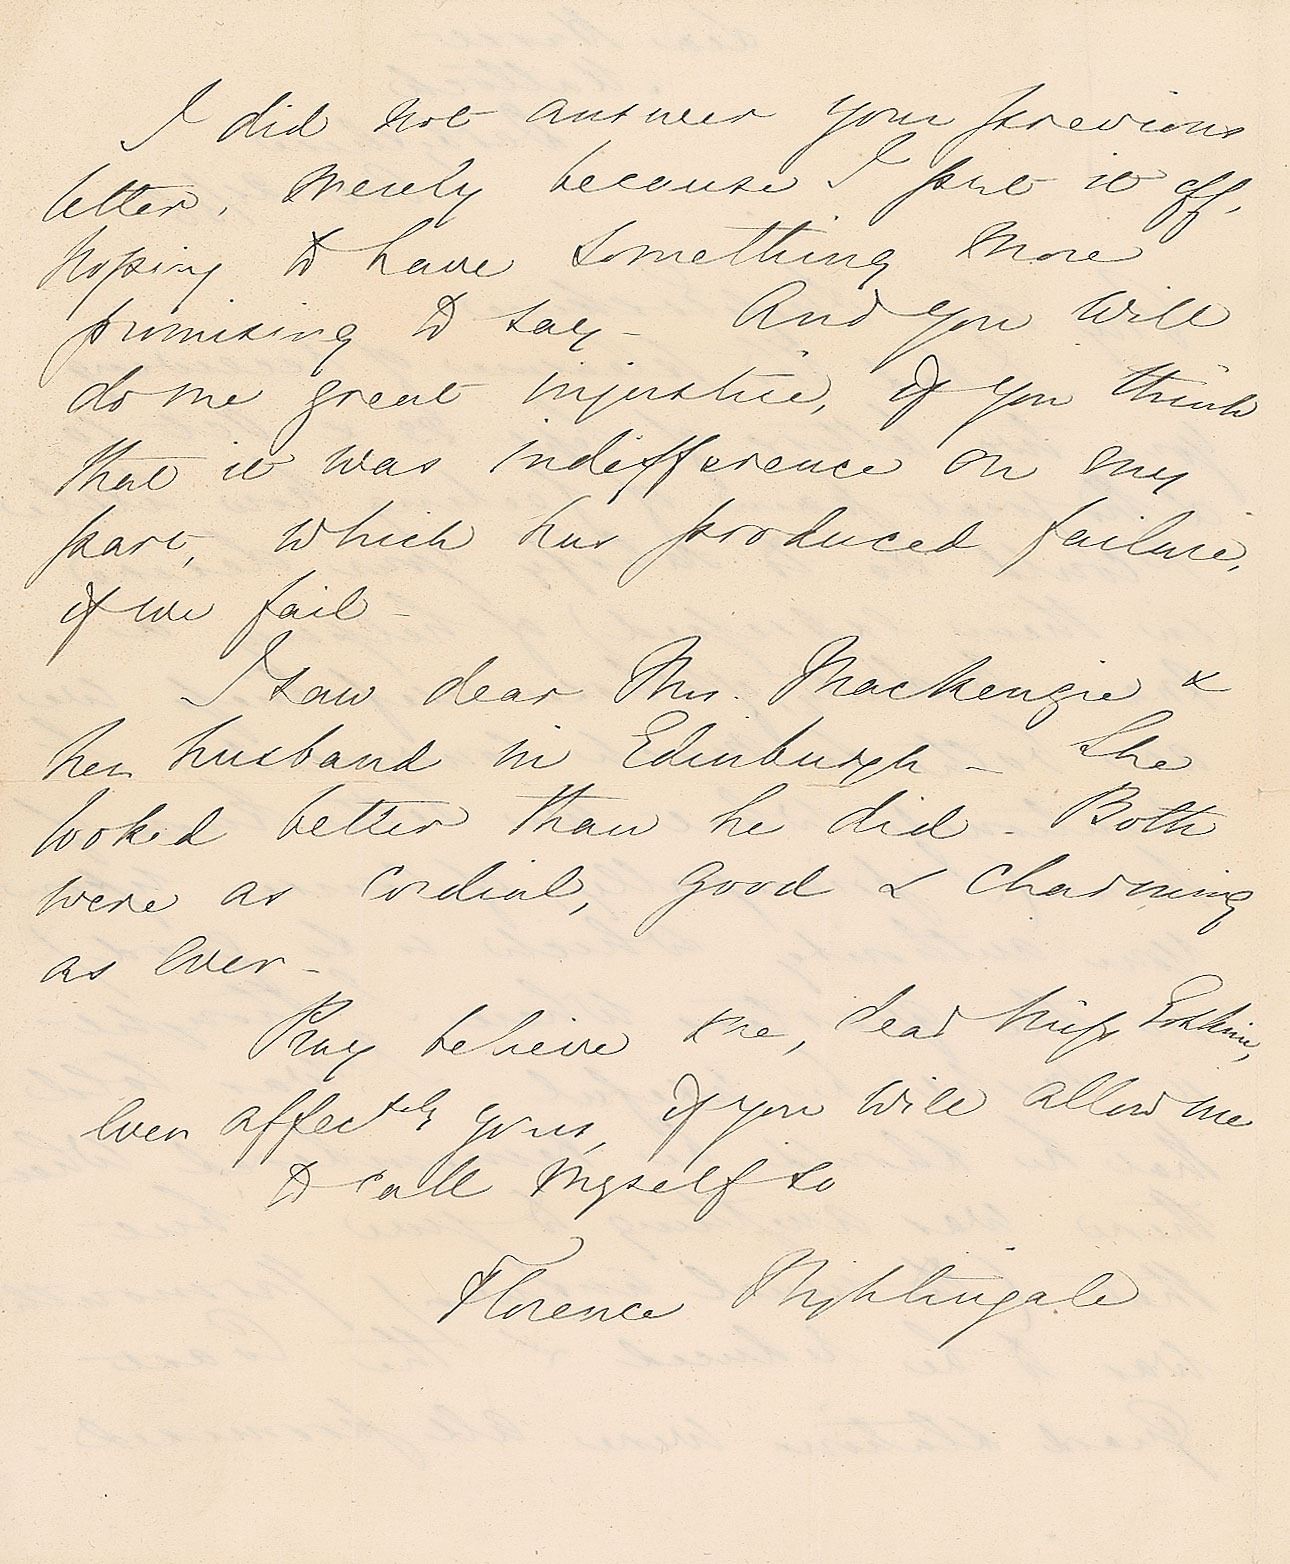 I did not answer your previous
letter, merely because I put it off,
hoping to have something more
promising to say - And you will
do me great injustice, if you think
that it was indifference on my
part, which has produced failure,
if we fail -
I saw dear Mrs. Mackenzie &
her husband in Edinburgh - She
looked better than he did - Both
were as cordial, good & charming
as ever -
Pray believe me, dear Miss Erskine,
ever affectely yours, if you will allow me
to call myself so
Florence Nightingale